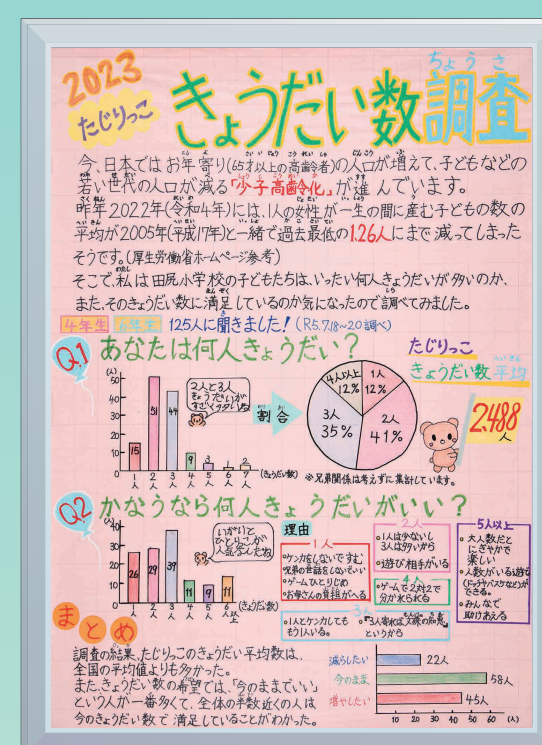 2023
たじりっこ
きょうだい数調査
ちょうさ
今、日本ではお年寄り(65才以上の高齢者)の人口が増えて、子どもなどの
若い世代の人口が減る「少子高齢化」が進んでいます。
昨年2022年(令和4年)には、1人の女性が一生の間に産む子どもの数の
平均が2005年(平成17年)と一緒で過去最低の1.26人にまで減ってしまった
そうです。(厚生労働省ホームページ参考)
そこで、私は田尻小学校の子どもたちは、いったい何人きょうだいが多いのか、
また、そのきょうだい数に満足しているのか気になったので調べてみました。
4年生 6年生 125人に聞きました!(R5.7.18~20調べ)
Q.1 あなたは何人きょうだい?
(人)
50
40
30
20
10
0
15
51
44
9
3
1
2
1人 2人 3人 4人 5人 6人 7人 (きょうだい数)
2人と3人
きょうだいが
すごく多いね
割合
4人以上
12%
1人
12%
3人
35%
2人
41%
※兄弟関係は考えずに集計しています。
たじりっこ
きょうだい数平均
2.488人
Q.2 かなうなら何人きょうだいがいい?
(人)
40
30
20
10
0
26
29
39
11
9
11
1人 2人 3人 4人 5人 6人以上 (きょうだい数)
いがいと
ひとりっこが
人気なんだね
理由
1人
・ケンカをしないですむ
・兄弟の世話をしないでいい
・ゲームひとりじめ
・お母さんの負担がへる
2人
・1人は少ないし
3人は多いから
・遊び相手がいる
4人
・ゲームで2対2で
分かれられる
3人
・1人とケンカしても
もう1人いる。
・「3人寄れば文殊の知恵」
というから
5人以上
・大人数だと
にぎやかで
楽しい
・人数がいる遊び
(ドッチやバスケなど)が
できる。
・みんなで
助けあえる
まとめ
調査の結果、たじりっこのきょうだい平均数は、
全国の平均値よりも多かった。
また、きょうだい数の希望では、「今のままでいい」
という人が一番多くて、全体の半数近くの人は
今のきょうだい数で満足していることがわかった。
減らしたい 22人
今のまま 58人
増やしたい 45人
10 20 30 40 50 60 (人)